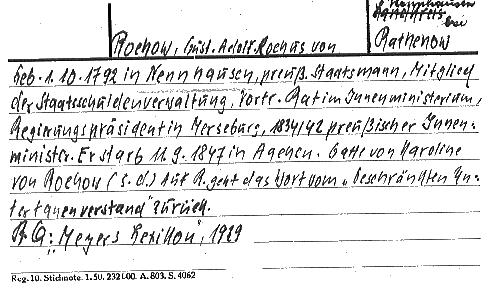 Nennhausen
Landkreis
bei
Rochow, Gust. Adolf. Rochus von
Rathenow
Geb. 1.10.1792 in Nennhausen, preuß. Staatsmann, Mitglied
der Staatsschuldenverwaltung, Vortr. Rat im Innenministerium,
Regierungspräsident in Merseburg, 1834/42 preußischer Innen-
minister. Er starb 11.9.1847 in Aachen. Gatte von Karoline
von Rochow (s.d.) Auf R. geht das Wort vom „beschränkten Un-
tertanenverstand" zurück.
R. Q: „Meyers Lexikon", 1929
Reg. 10. Stichnote. 1. 50. 232 L 00. A. 803. S. 4062